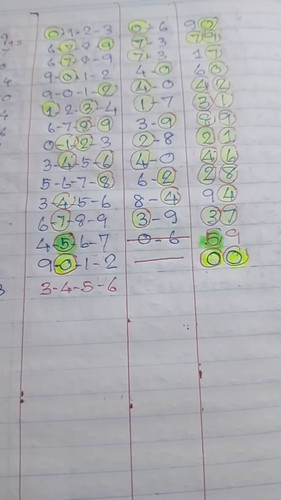 0-1-2-3 0-6 92
6-7-8-9 7-3 79
6-7-8-9 7-3 17
9-0-1-2 4-0 60
9-0-1-2 4-0 42
1-2-3-4 1-7 31
6-7-8-9 3-9 89
0-1-2-3 2-8 21
3-4-5-6 4-0 46
5-6-7-8 6-2 28
3-4-5-6 8-4 94
6-7-8-9 3-9 37
4-5-6-7 0-6 59
9-0-1-2 00
3-4-5-6